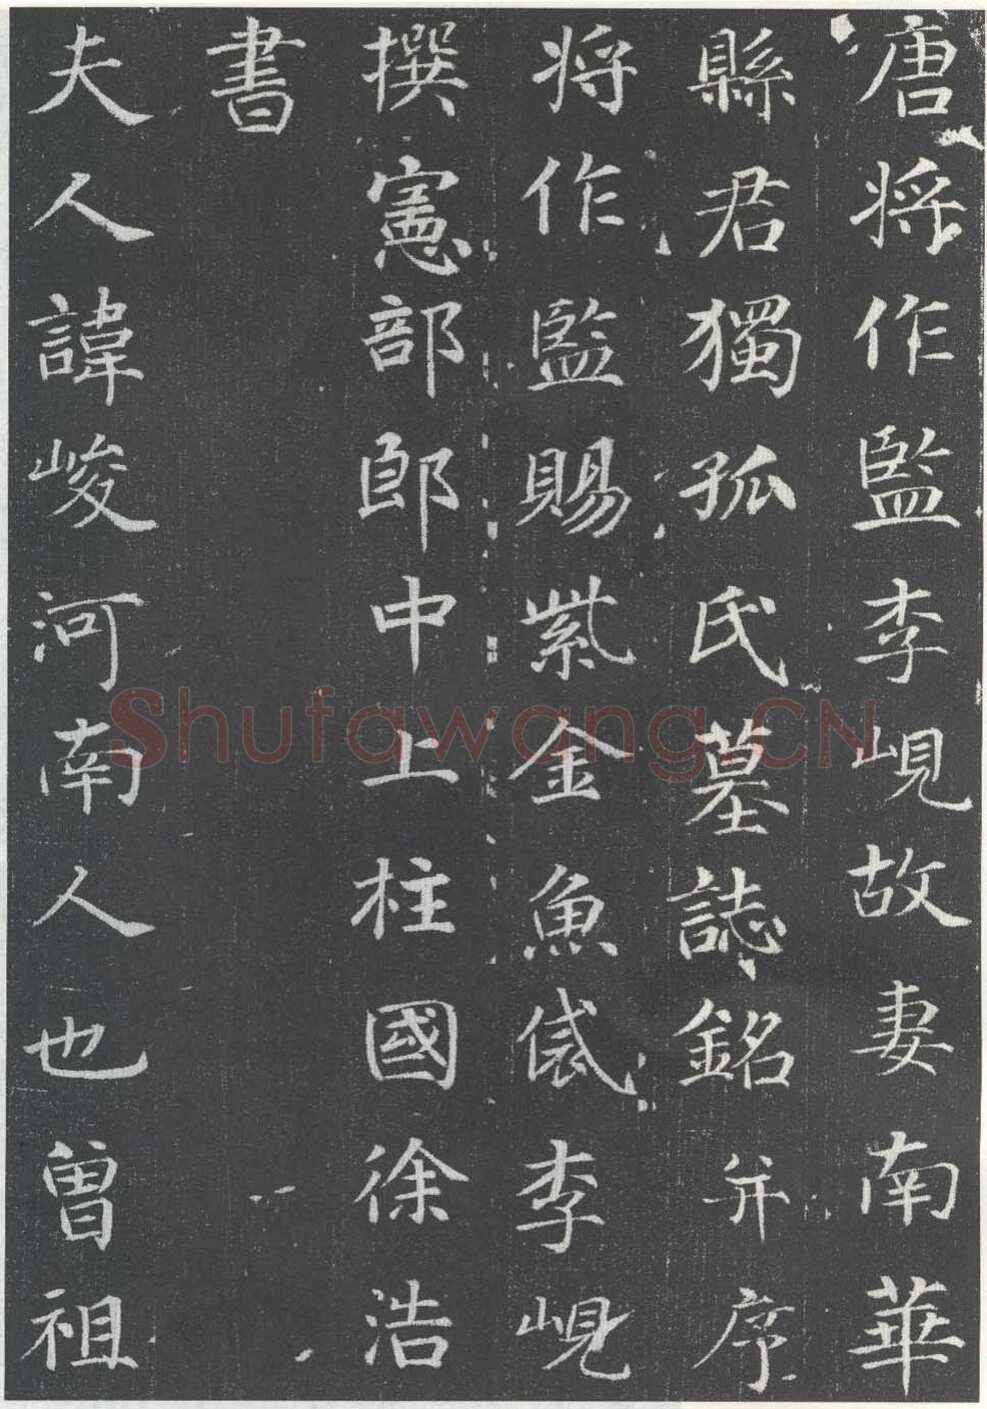 唐将作監李峴故妻南華
縣君獨孤氏墓誌銘并序
将作監賜紫金魚袋李峴
撰憲部郎中上柱國徐浩
書
夫人諱峻河南人也曾祖
Shufawang.CN